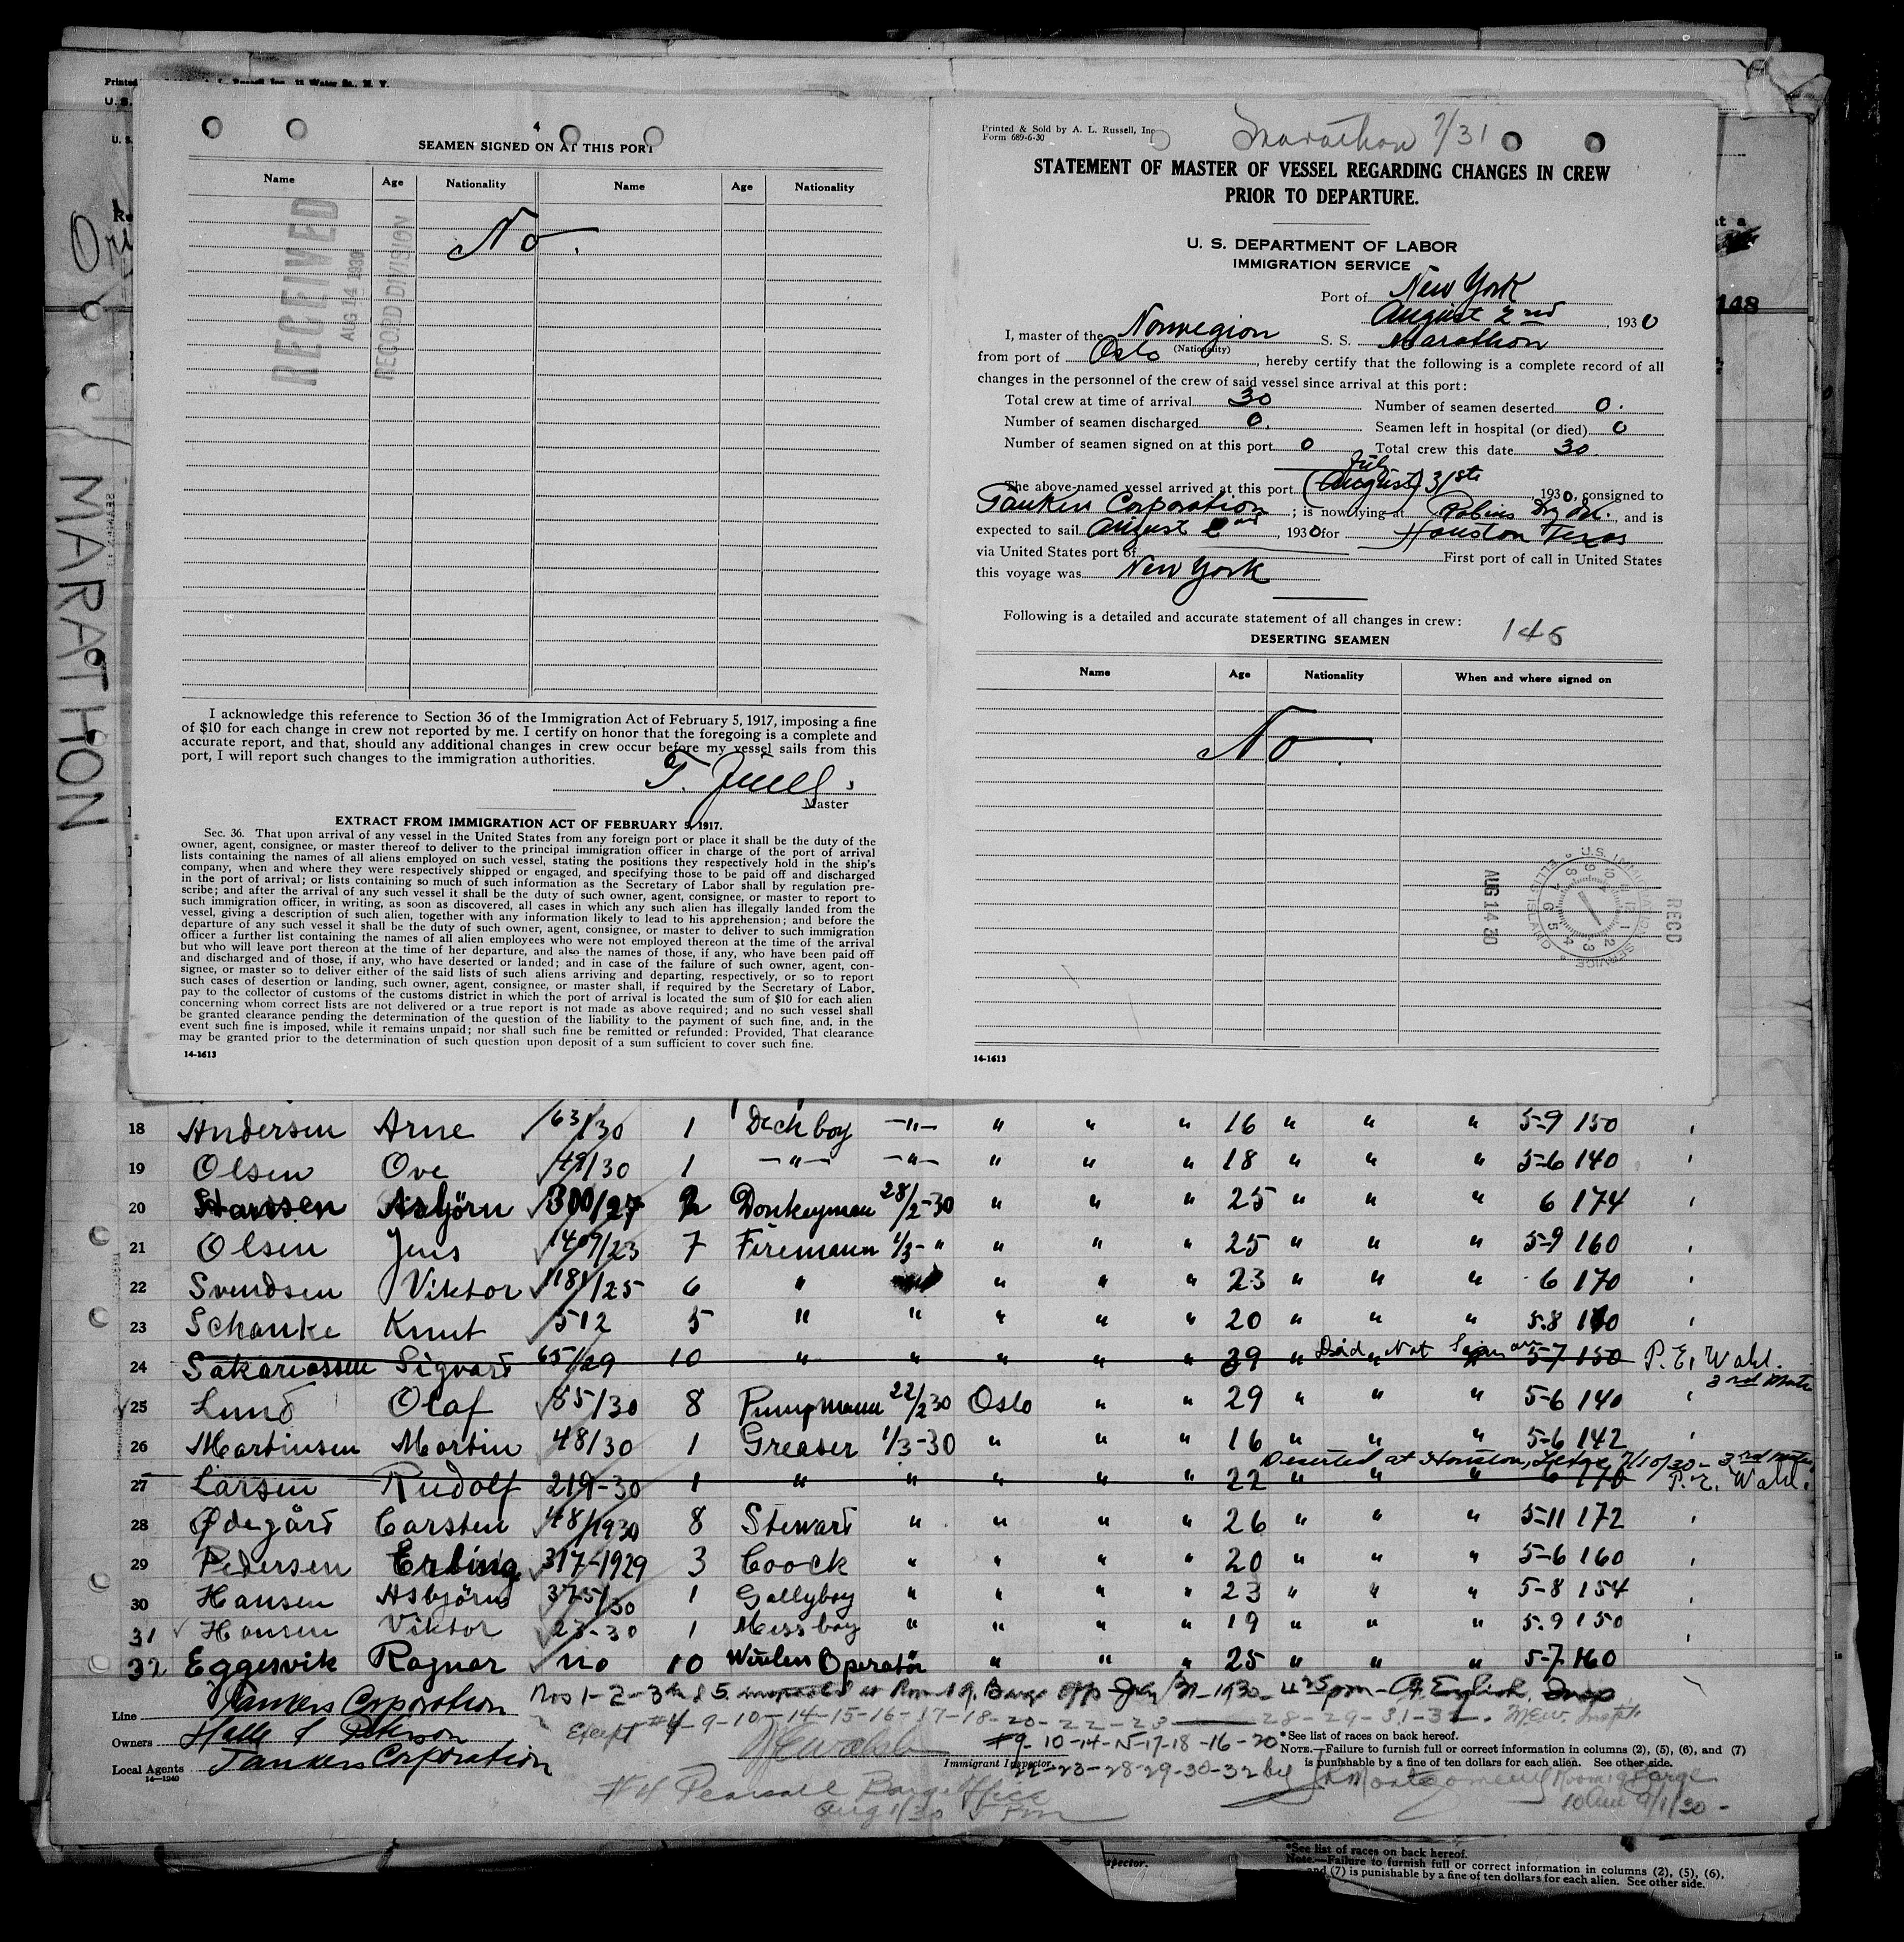 4
SEAMEN SIGNED ON AT THIS PORT
Name Age Nationality Name Age Nationality
No.
RECEIVED
AUG 14 1930
RECORD DIVISION
I acknowledge this reference to Section 36 of the Immigration Act of February 5, 1917, imposing a fine
of $10 for each change in crew not reported by me. I certify on honor that the foregoing is a complete and
accurate report, and that, should any additional changes in crew occur before my vessel sails from this
port, I will report such changes to the immigration authorities.
T. Juell
Master
EXTRACT FROM IMMIGRATION ACT OF FEBRUARY 5, 1917.
Sec. 36. That upon arrival of any vessel in the United States from any foreign port or place it shall be the duty of the
owner, agent, consignee, or master thereof to deliver to the principal immigration officer in charge of the port of arrival
lists containing the names of all aliens employed on such vessel, stating the positions they respectively hold in the ship's
company, when and where they were respectively shipped or engaged, and specifying those to be paid off and discharged
in the port of arrival; or lists containing so much of such information as the Secretary of Labor shall by regulation pre-
scribe; and after the arrival of any such vessel it shall be the duty of such owner, agent, consignee, or master to report to
such immigration officer, in writing, as soon as discovered, all cases in which any such alien has illegally landed from the
vessel, giving a description of such alien, together with any information likely to lead to his apprehension; and before the
departure of any such vessel it shall be the duty of such owner, agent, consignee, or master to deliver to such immigration
officer a further list containing the names of all alien employees who were not employed thereon at the time of the arrival
but who will leave port thereon at the time of her departure, and also the names of those, if any, who have been paid off
and discharged and of those, if any, who have deserted or landed; and in case of the failure of such owner, agent, con-
signee, or master so to deliver either of the said lists of such aliens arriving and departing, respectively, or so to report
such cases of desertion or landing, such owner, agent, consignee, or master shall, if required by the Secretary of Labor,
pay to the collector of customs of the customs district in which the port of arrival is located the sum of $10 for each alien
concerning whom correct lists are not delivered or a true report is not made as above required; and no such vessel shall
be granted clearance pending the determination of the question of the liability to the payment of such fine, and, in the
event such fine is imposed, while it remains unpaid; nor shall such fine be remitted or refunded: Provided, That clearance
may be granted prior to the determination of such question upon deposit of a sum sufficient to cover such fine.
14-1613
Printed & Sold by A. L. Russell, Inc
Form 689-6-30
Marathon 7/31
STATEMENT OF MASTER OF VESSEL REGARDING CHANGES IN CREW
PRIOR TO DEPARTURE.
U. S. DEPARTMENT OF LABOR
IMMIGRATION SERVICE
Port of New York
August 2nd, 1930
I, master of the Norwegion S. S. Marathon
(Nationality)
from port of Oslo, hereby certify that the following is a complete record of all
changes in the personnel of the crew of said vessel since arrival at this port:
Total crew at time of arrival 30 Number of seamen deserted 0.
Number of seamen discharged 0. Seamen left in hospital (or died) 0
Number of seamen signed on at this port 0 Total crew this date 30
July
The above-named vessel arrived at this port (August) 31st 1930, consigned to
Tankers Corporation; is now lying at Robins Dry Dk., and is
expected to sail August 2nd, 1930 for Houston Texas
via United States port of First port of call in United States
this voyage was New York
Following is a detailed and accurate statement of all changes in crew:
146
DESERTING SEAMEN
Name Age Nationality When and where signed on
No.
AUG 14 30
U.S. IMMIGRATION SERVICE ELLIS ISLAND
RECD
14-1613
MARATHON
148
18 Andersen Arne 63/30 1 Deck boy -"- " " " 16 " " " 5-9 150
19 Olsen Ove 49/30 1 -"- -"- " " " 18 " " " 5-6 140
20 Hansen Asbjörn 300/27 2 Donkeyman 28/2-30 " " " 25 " " " 6 174
21 Olsen Jens 1409/23 7 Firemann 1/3-" " " " 25 " " " 5-9 160
22 Svendsen Viktor 1181/25 6 " " " " 23 " " " 6 170
23 Schanke Knut 512 5 " " " " " 20 " " " 5-8
Did Not Sign on
24 Sakariassen Sigvard 651/29 10 " " " " " 39 " " " 5-7 150 P. E. Wahl.
3rd Mate
25 Lund Olaf 85/30 8 Pumpmann 22/2 30 Oslo " " 29 " " " 5-6 140
26 Martinsen Martin 48/30 1 Greaser 1/3-30 " " " 16 " " " 5-6 142
Deserted at Houston, Texas 7/10/30 - 3rd Mate
27 Larsen Rudolf 219-30 1 " " " " " 22 " " " 6 170 P. E. Wahl.
28 Ødegård Carsten 48/1930 8 Stewart " " " " 26 " " " 5-11 172
29 Pedersen Erling 317-1929 3 Coock " " " " 20 " " " 5-6 160
30 Hansen Asbjörn 375/30 1 Gallyboy " " " " 23 " " " 5-8 154
31 Hansen Viktor 23-30 1 Messboy " " " " 19 " " " 5-9 150
32 Eggesvik Ragnar no 10 Wireless Operatör " " " 25 " " " 5-7 160
Line Tankers Corporation
Owners Halle & Peterson
Local Agents Tankers Corporation
14-1240
Except #4-9-10-14-15-16-17-18-20-22-23 28-29-31-32.
#9-10-14-15-17-18-16-20
Immigrant Inspector
22-23-28-29-30-32 by Montgomery
*See list of races on back hereof.
NOTE.—Failure to furnish full or correct information in columns (2), (5), (6), and (7)
is punishable by a fine of ten dollars for each alien. See other side.
#4 Pearsall Barge Office
Aug 1/30 5 Pm
*See list of races on back hereof.
Note.—Failure to furnish full or correct information in columns (2), (5), (6),
and (7) is punishable by a fine of ten dollars for each alien. See other side.